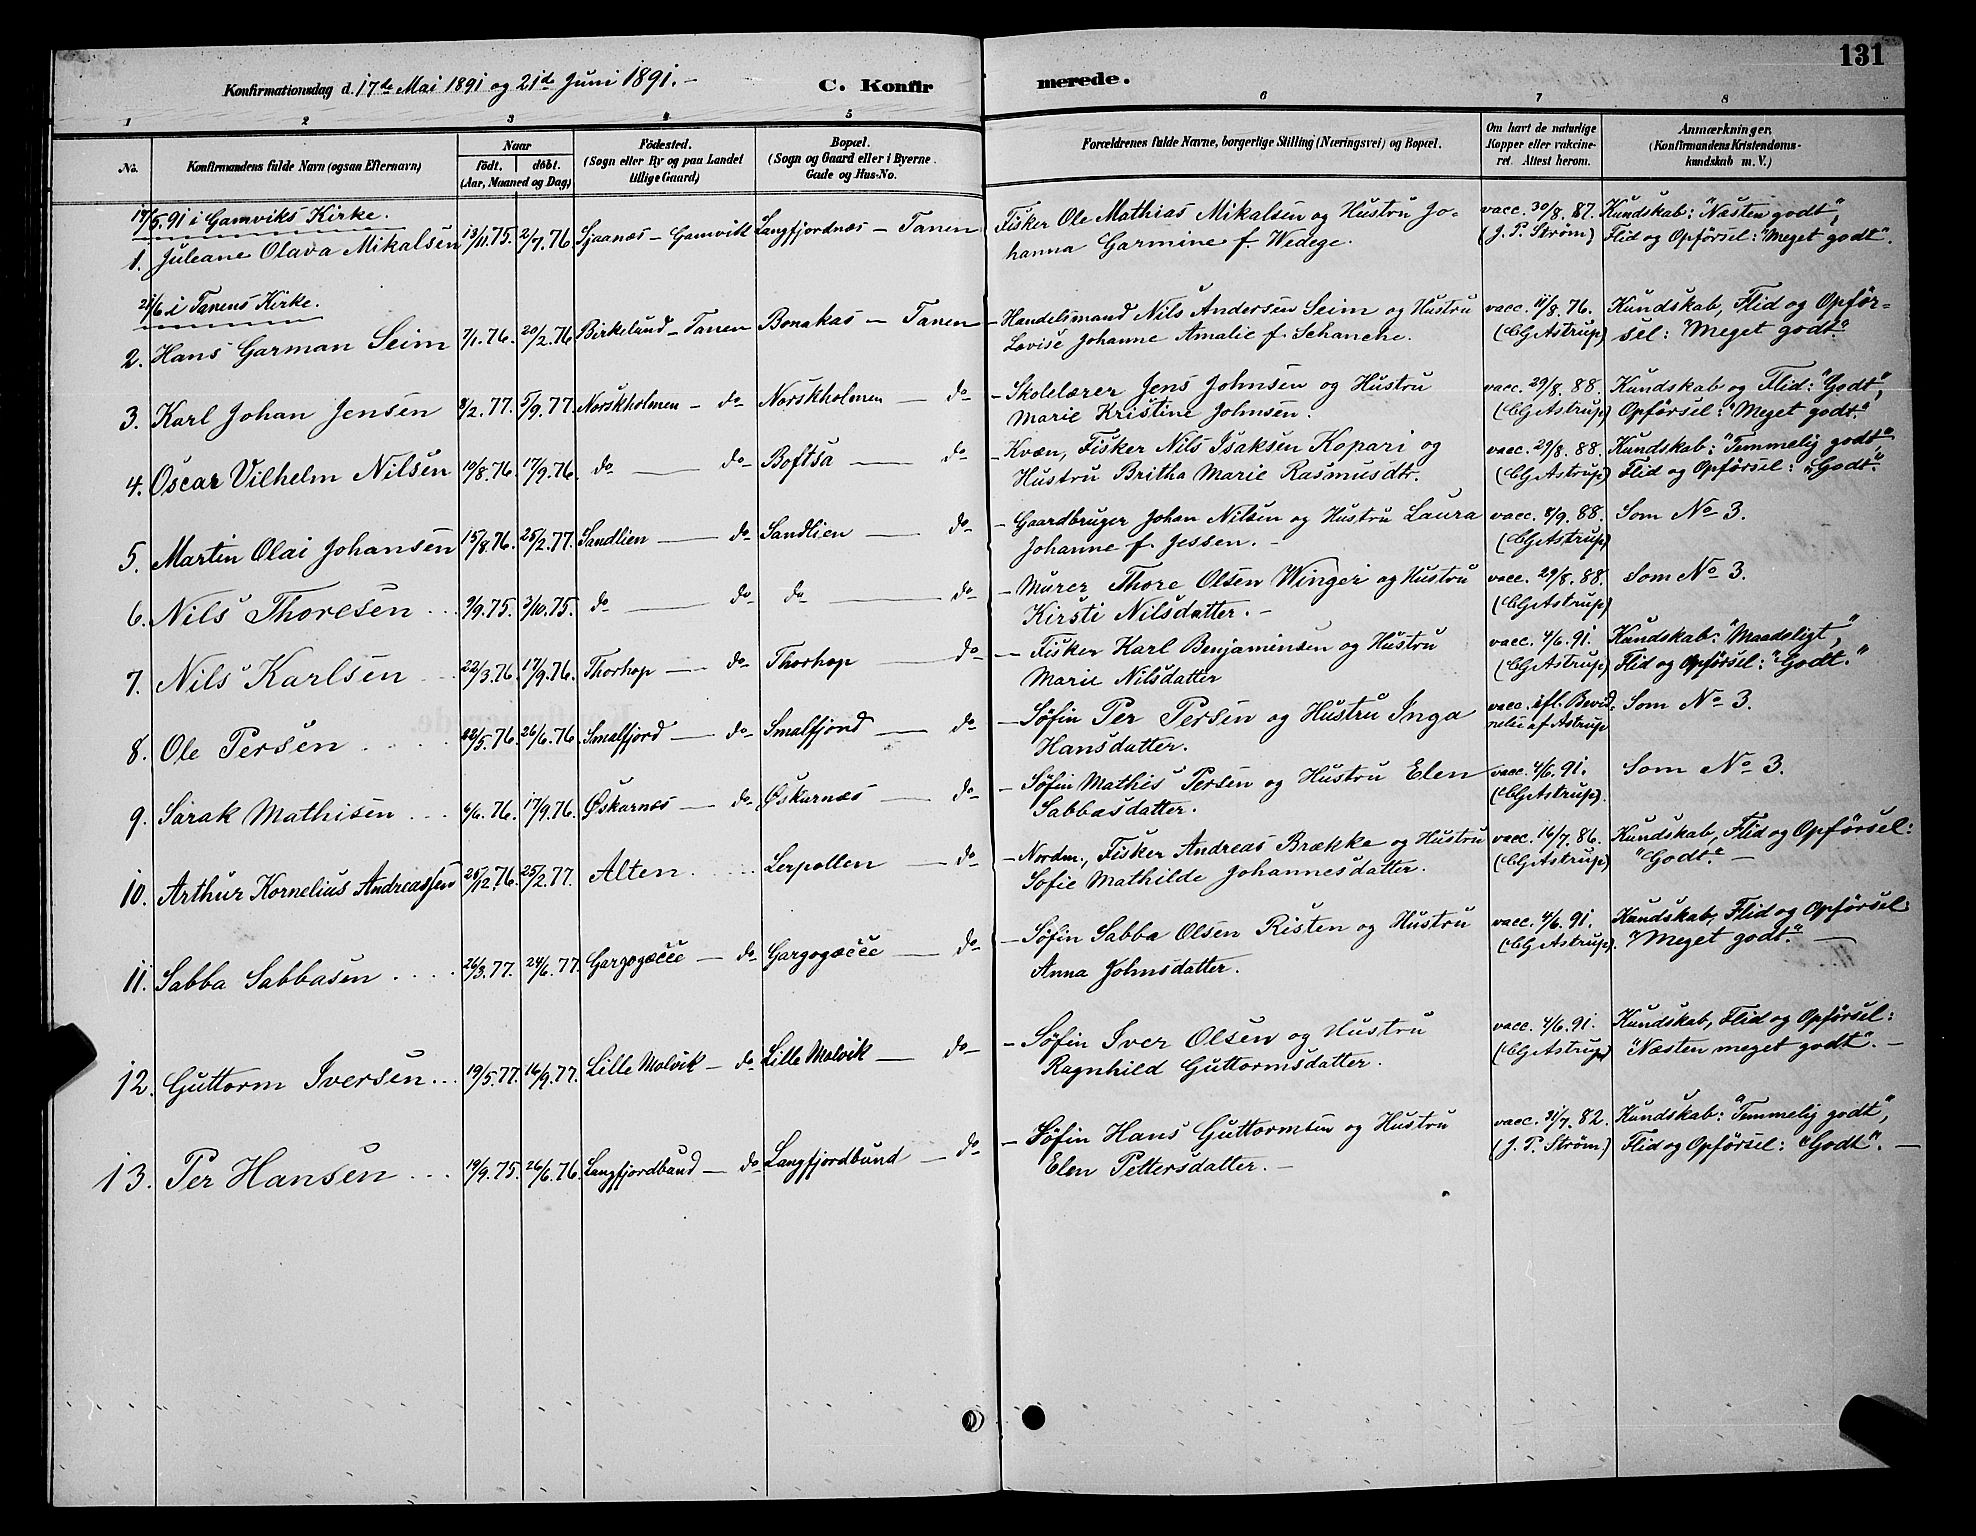 131
Konfirmationsdag d. 17de Mai 1891 og 21de Juni 1891. –
C. Konfirmerede.
1 2 3 4 5 6 7 8
No.
Konfirmandens fulde Navn (ogsaa Efternavn)
Naar
födt. döbt.
(Aar, Maaned og Dag)
Födested.
(Sogn eller By og paa Landet
tillige Gaard)
Bopæl.
(Sogn og Gaard eller i Byerne
Gade og Hus-No.
Forældrenes fulde Navne, borgerlige Stilling (Næringsvei) og Bopæl.
Om havt de naturlige
Kopper eller vakcine-
ret. Attest herom.
Anmærkninger.
(Konfirmandens Kristendoms-
kundskab m. V.)
17/5.91 i Gamviks Kirke.
1. Juleane Olava Mikalsen 13/11.75. 2/7.76 Sjaanæs – Gamvik Langfjordnæs – Tanen
Fisker Ole Mathias Mikalsen og Hustru Jo-
hanna Garmine f. Wedege.
vacc. 30/8. 87.
(J. P. Strøm)
Kundskab: "Næsten godt",
Flid og Opförsel: "Meget godt".
21/6 i Tanens Kirke.
2. Hans Garman Seim 7/1.76. 20/2.76 Birkelund – Tanen Bonakas – Tanen
– Handelsmand Nils Andersen Seim og Hustru
Lovise Johanne Amalie f. Schanche.
vacc. 11/8. 76.
(CG Astrup)
Kundskab, Flid og Opför-
sel: "Meget godt."
3. Karl Johan Jensen 8/2.77. 5/9.77. Norskholmen – do Norskholmen – do
– Skolelærer Jens Johnsen og Hustru
Marie Kristine Johnsen.
vacc. 29/8. 88.
(CG Astrup)
Kundskab og Flid: "Godt",
Opförsel: "Meget godt."
4. Oscar Vilhelm Nilsen 10/8.76 17/9.76. do – do Boftsa – do
– Kvæn, Fisker Nils Isaksen Kopari og
Hustru Britha Marie Rasmusdtr.
vacc. 29/8. 88.
(CG Astrup)
Kundskab: "Temmelig godt"
Flid og Opförsel: "Godt."
5. Martin Olai Johansen 15/8.76. 25/2.77. Sandlien – do Sandlien – do
– Gaardbruger Johan Nilsen og Hustru Laura
Johanne f. Jessen. –
vacc. 8/9. 88.
(CG Astrup)
Som No 3.
6. Nils Thoresen 9/9.75. 3/10.75. do – do do – do
– Murer Thore Olsen Winger og Hustru
Kirsti Nilsdatter. –
vacc. 29/8. 88.
(CG Astrup)
Som No 3.
7. Nils Karlsen 22/3.76. 17/9.76. Thorhop – do Thorhop – do
– Fisker Karl Benjaminsen og Hustru
Marie Nilsdatter
vacc. 4/6. 91.
(CG Astrup)
Kundskab: "Maadeligt",
Flid og Opförsel: "Godt."
8. Ole Persen 22/5.76. 26/6.76. Smalfjord – do Smalfjord – do
– Søfin Per Persen og Hustru Inga
Hansdatter.
vacc. efl. Bevid-
nelse af Astrup
Som No 3.
9. Sarak Mathisen 4/6.76. 17/9.76. Øskarnæs – do Øskarnæs – do
– Søfin Mathis Persen og Hustru Elen
Sabbasdatter.
vacc. 4/6. 91.
(CG Astrup).
Som No 3.
10. Arthur Kornelius Andreassen 25/12.76. 25/2.77. Alten Lerpollen – do
– Nordm., Fisker Andreas Brække og Hustru
Sofie Mathilde Johannesdatter.
vacc. 16/7. 86.
(CG Astrup)
Kundskab, Flid og Opförsel:
"Godt." –
11. Sabba Sabbasen 26/3.77. 24/6.77. Gargogæčče – do Gargogæčče – do
– Søfin Sabba Olsen Risten og Hustru
Anna Johnsdatter.
vacc. 4/6. 91.
(CG Astrup).
Kundskab, Flid og Opförsel:
"Meget godt." –
12. Guttorm Iversen 19/5.77. 16/9.77. Lille Molvik – do Lille Molvik – do
– Søfin Iver Olsen og Hustru
Ragnhild Guttormsdatter.
vacc. 4/6. 91.
(CG Astrup)
Kundskab, Flid og Opförsel:
"Næsten meget godt". –
13. Per Hansen 19/9.75. 26/6.76 Langfjordbund – do Langfjordbund – do
– Søfin Hans Guttormsen og Hustru
Elen Pettersdatter. –
vacc. 31/7. 82.
(J. P. Strøm)
Kundskab: "Temmelig godt",
Flid og Opförsel: "Godt". –